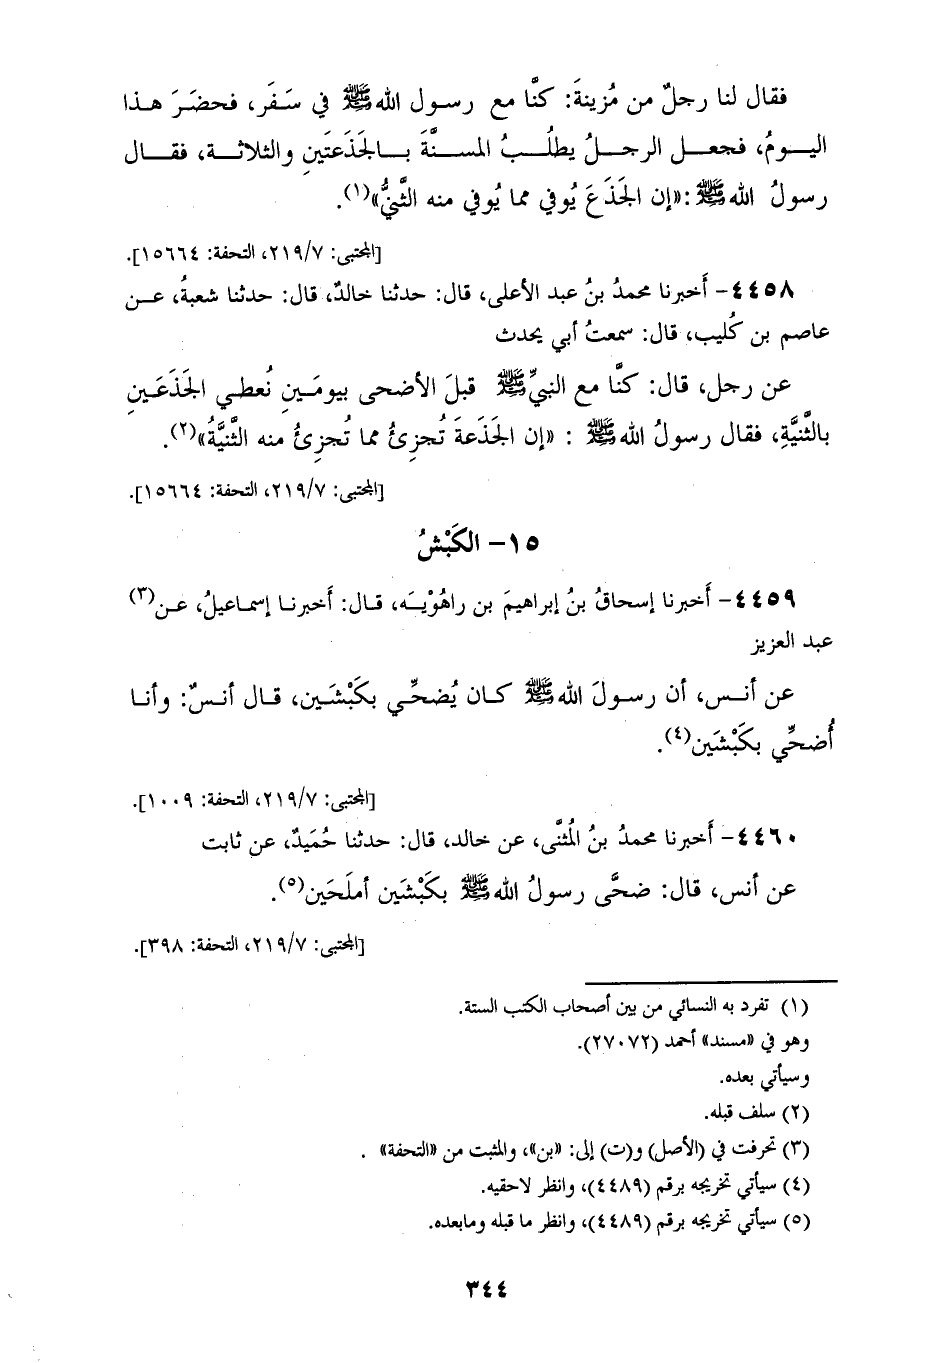 فقال لنا رجلٌ من مُزينةَ: كنَّا مع رسول الله ﷺ في سَفَر، فحضَرَ هذا
اليومُ، فجعل الرجلُ يطلُبُ المسنَّةَ بالجَذَعتَينِ والثلاثة، فقال
رسولُ الله ﷺ: «إن الجَذَعَ يُوفي مما يُوفي منه الثَّنيُّ»(١).
[المجتبى: ٢١٩/٧، التحفة: ١٥٦٦٤].
٤٤٥٨- أخبرنا محمدُ بنُ عبد الأعلى، قال: حدثنا خالدٌ، قال: حدثنا شعبةُ، عن
عاصم بن كُليب، قال: سمعتُ أبي يحدث
عن رجل، قال: كنَّا مع النبيِّ ﷺ قبلَ الأضحى بيومَينِ نُعطي الجَذَعَينِ
بالثَّنيَّةِ، فقال رسولُ الله ﷺ : «إن الجَذَعةَ تُجزِئُ مما تُجزِئُ منه الثَّنيَّةُ»(٢).
[المجتبى: ٢١٩/٧، التحفة: ١٥٦٦٤].
١٥- الكَبْشُ
٤٤٥٩- أخبرنا إسحاقُ بنُ إبراهيمَ بن راهُوْيَه، قال: أخبرنا إسماعيلُ، عن(٣)
عبد العزيز
عن أنس، أن رسولَ الله ﷺ كان يُضحِّي بكَبْشَين، قال أنسٌ: وأنا
أُضحِّي بكَبْشَين(٤).
[المجتبى: ٢١٩/٧، التحفة: ١٠٠٩].
٤٤٦٠- أخبرنا محمدُ بنُ المُثنَّى، عن خالد، قال: حدثنا حُمَيدٌ، عن ثابت
عن أنس، قال: ضحَّى رسولُ الله ﷺ بكَبْشَين أملَحَين(٥).
[المجتبى: ٢١٩/٧، التحفة: ٣٩٨].
(١) تفرد به النسائي من بين أصحاب الكتب الستة.
وهو في «مسند» أحمد (٢٧٠٧٢).
وسيأتي بعده.
(٢) سلف قبله.
(٣) تحرفت في (الأصل) و(ت) إلى: «بن»، والمثبت من «التحفة» .
(٤) سيأتي تخريجه برقم (٤٤٨٩)، وانظر لاحقيه.
(٥) سيأتي تخريجه برقم (٤٤٨٩)، وانظر ما قبله ومابعده.
٣٤٤